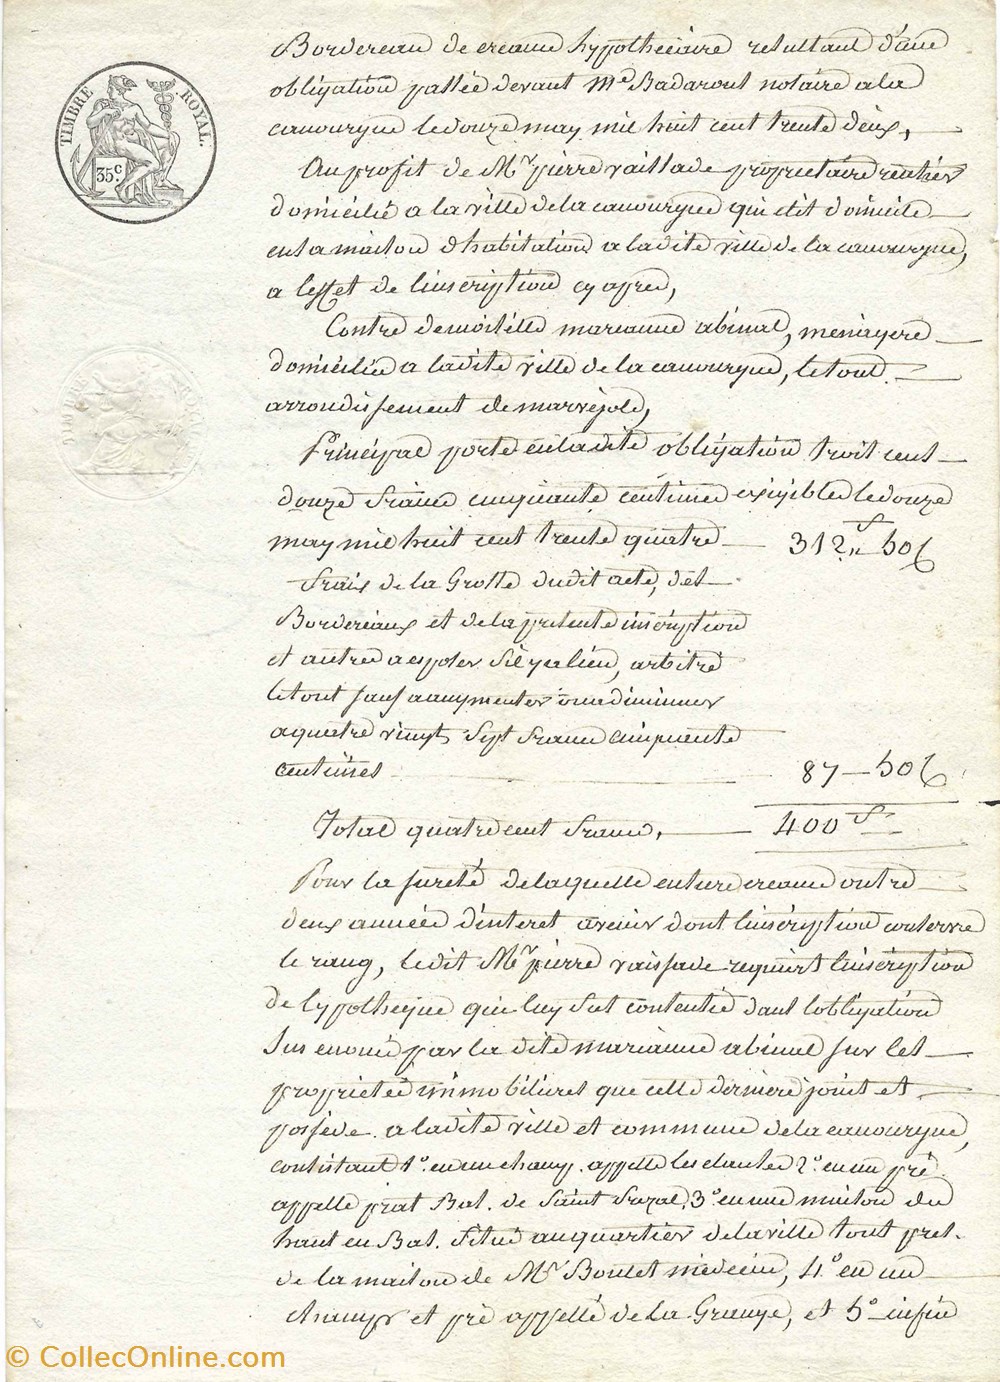 TIMBRE ROYAL.
35c.
Bordereau de creance hypothecaire resultant d'une
obligation passée devant Me Badarout notaire a la
canourgue le douze may mil huit cent trente deux,
Au profit de Mr pierre vaissade propriétaire rentier
domicilié a la ville de la canourgue qui elit domicile
en sa maison d'habitation a la dite ville de la canourgue,
a l'effet de l'inscription cy apres,
Contre demoiselle marianne abinal, menagere
domiciliée a la dite ville de la canourgue, le tout
arrondissement de marvejols,
Principal porté en la dite obligation trois cent
douze francs cinquante centimes exigibles le douze
may mil huit cent trente quatre 312 f 50 c
frais de la Grosse dudit acte, des
Bordereaux et de la presente inscription
et autres a exposer s'il y a lieu, arbitré
le tout sauf a augmenter ou a diminuer
a quatre vingt sept francs cinquante
centimes 87 50 c
Total quatre cent francs, 400 f
Pour la sureté de laquelle entiere creance outre
deux années d'interet a venir dont l'inscription conserve
le rang, le dit Mr pierre vaissade requiert l'inscription
de l'ypotheque que luy s'est consentie dans l'obligation
sus enoncé par la dite marianne abinal sur les
proprietés immobilieres que celle derniere jouit et
possède a la dite ville et commune de la canourgue,
consistant 1o. en un champ appellé les 2o en un pré
appellé prat Bas de Saint frezal, 3o en une maison du
haut en Bas, situé au quartier de la ville tout pres
de la maison de Mr Boulet médecin, 4o en un
champ et pré appellé de la Grange, et 5o enfin
© CollecOnline.com